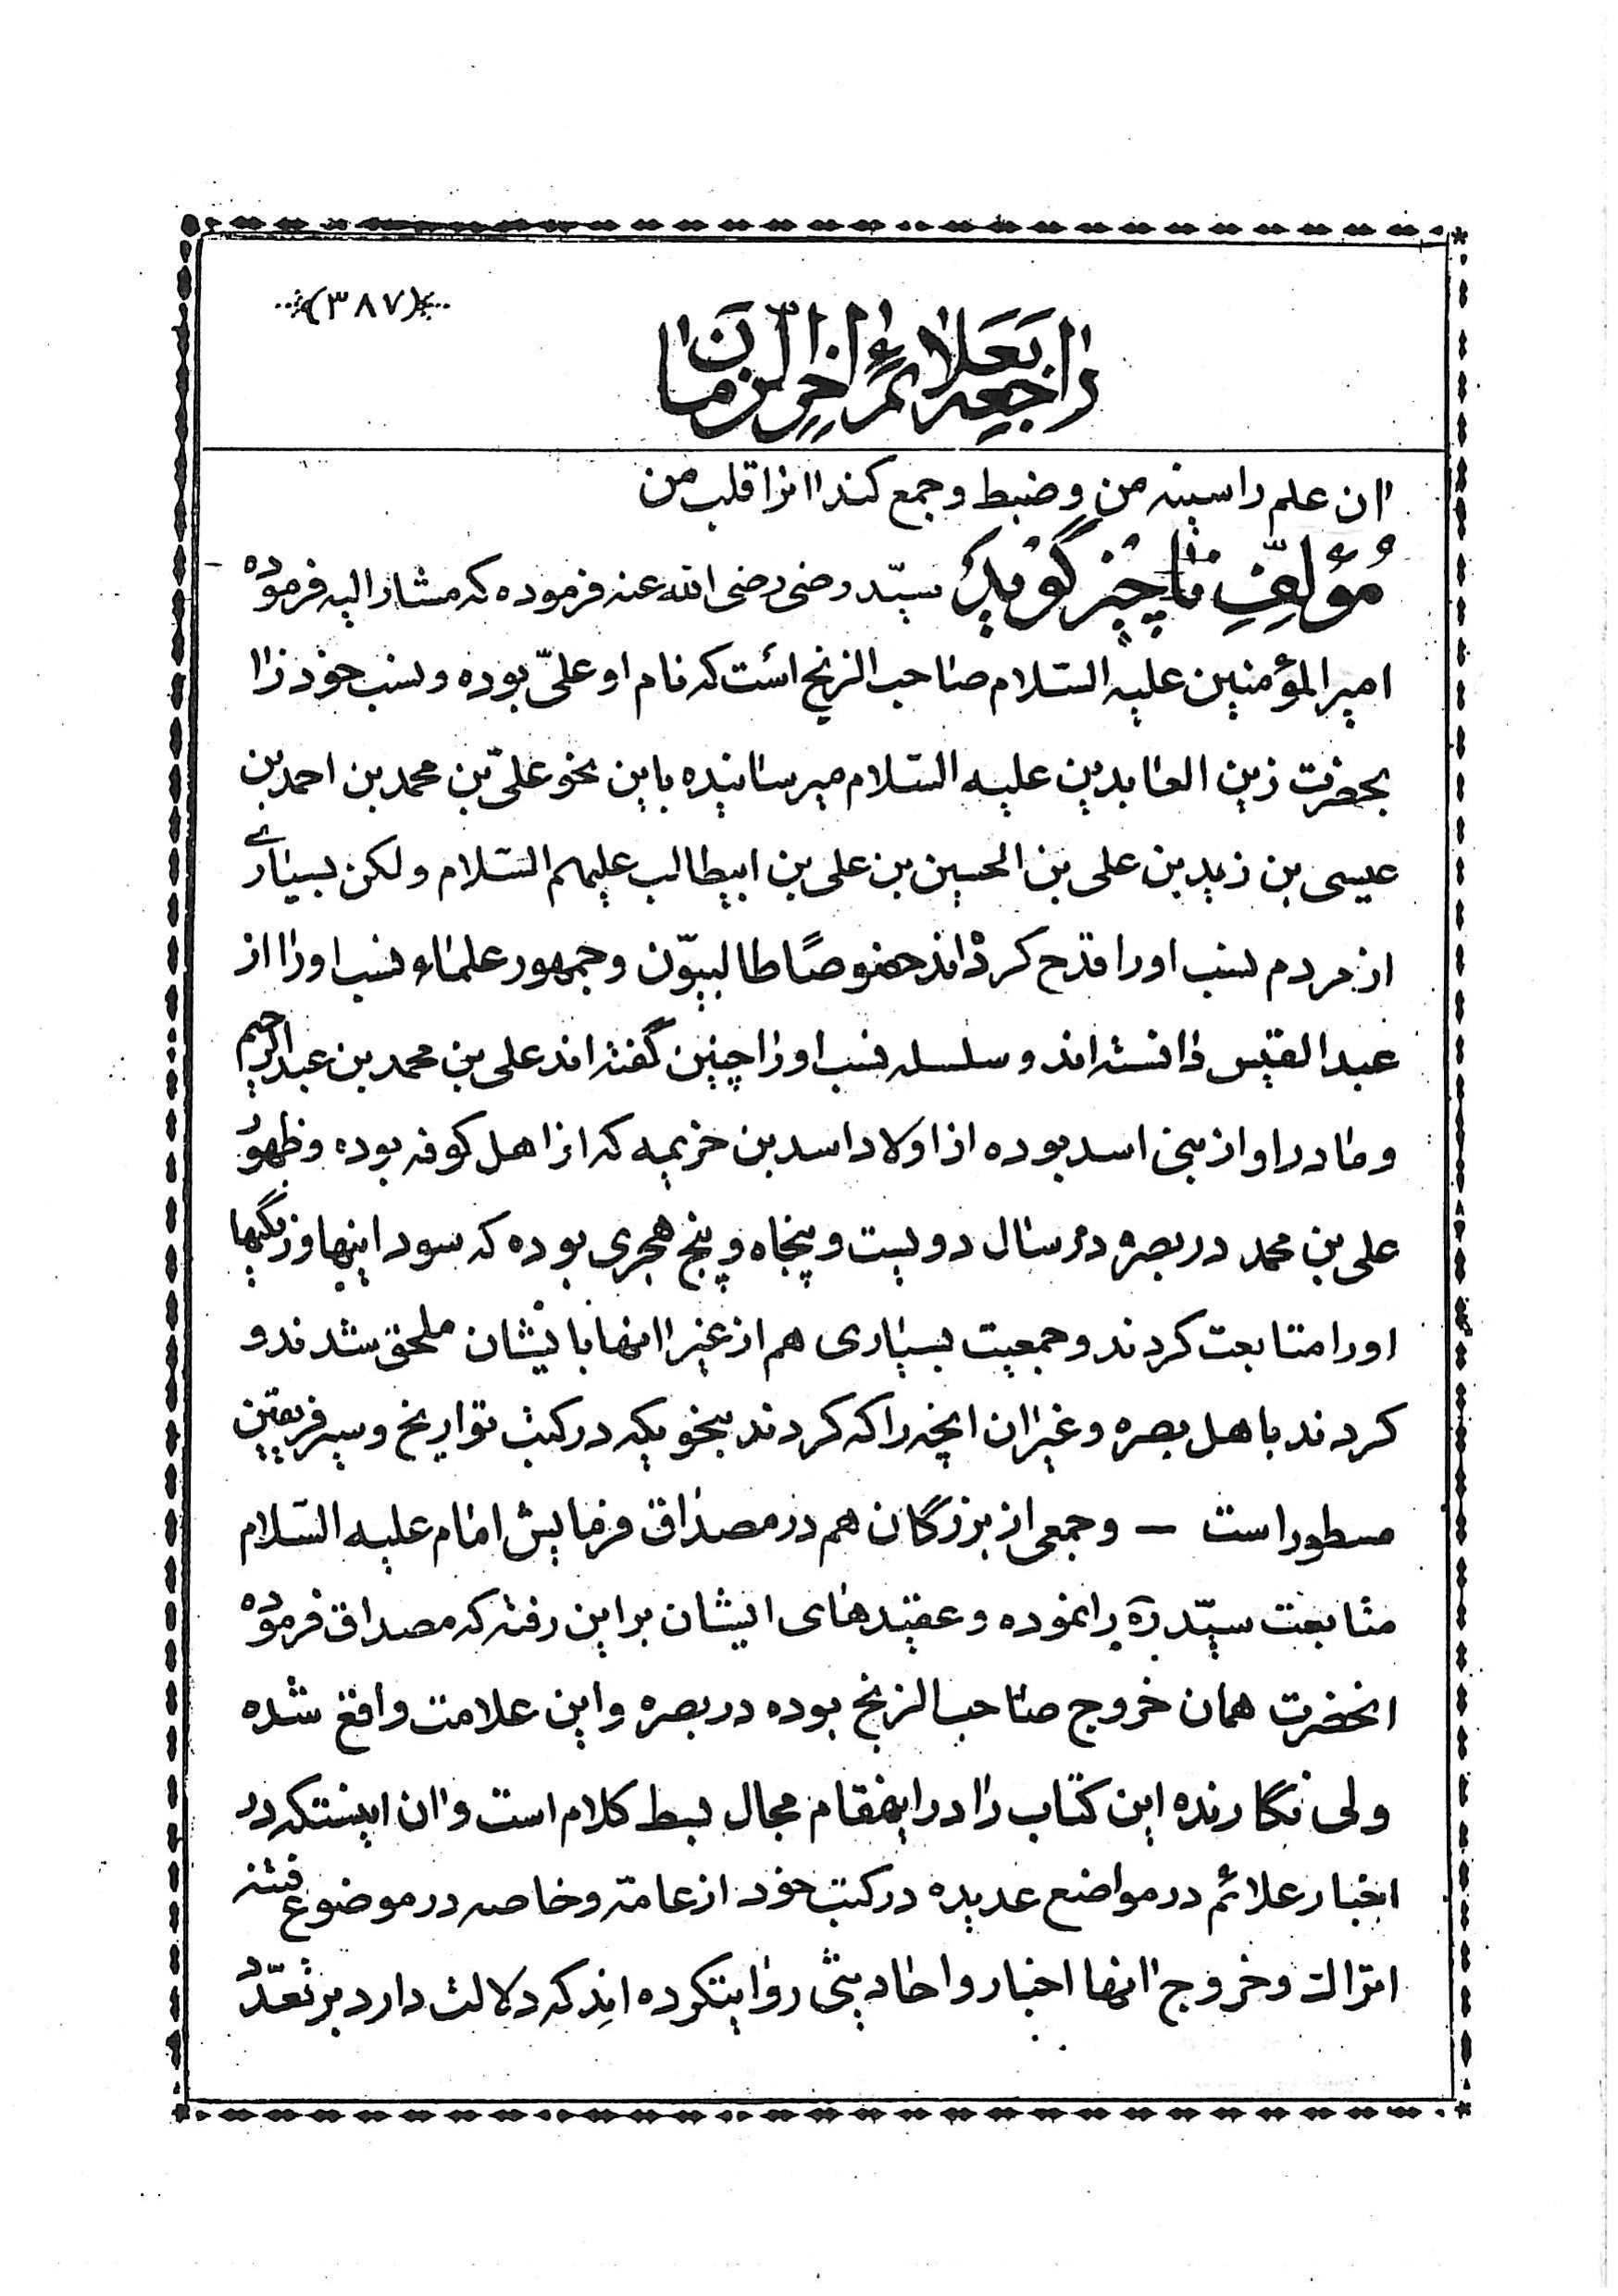 (۳۸۷)
راجعه بعلائم اخر الزمان
ان علم را سینه من و ضبط و جمع کند انرا قلب من
مؤلف ناچیز گوید سید رضی رضی الله عنه فرموده که مشار الیه فرموده
امیر المؤمنین علیه السلام صاحب الزنج است که نام او علی بوده و نسب خود را
بحضرت زین العابدین علیه السلام میرسانیده باین نحو علی بن محمد بن احمد بن
عیسی بن زید بن علی بن الحسین بن علی بن ابیطالب علیهم السلام ولکن بسیاری
از مردم نسب اورا قدح کرده اند خصوصًا طالبیّون و جمهور علماء نسب اورا از
عبد القیس دانسته اند و سلسله نسب اورا چنین گفته اند علی بن محمد بن عبد الرحیم
و مادر او از بنی اسد بوده از اولاد اسد بن خزیمه که از اهل کوفه بوده و ظهور
علی بن محمد در بصره در سال دویست و پنجاه و پنج هجری بوده که سودانیها و زنگیها
اورا متابعت کردند و جمعیت بسیاری هم از غیر انها بایشان ملحق شدند و
کردند با اهل بصره و غیر ان انچه را که کردند بنحویکه در کتب تواریخ و سیر فریقین
مسطور است — و جمعی از بزرگان هم در مصداق فرمایش امام علیه السلام
متابعت سید ره را نموده و عقیدهای ایشان بر این رفته که مصداق فرموده
انحضرت همان خروج صاحب الزنج بوده در بصره و این علامت واقع شده
ولی نگارنده این کتاب را در اینمقام مجال بسط کلام است و ان اینستکه در
اخبار علائم در مواضع عدیده در کتب خود از عامه و خاصه در موضوع فتنه
اتراک و خروج انها اخبار و احادیثی روایتکرده اند که دلالت دارد بر تعدّد